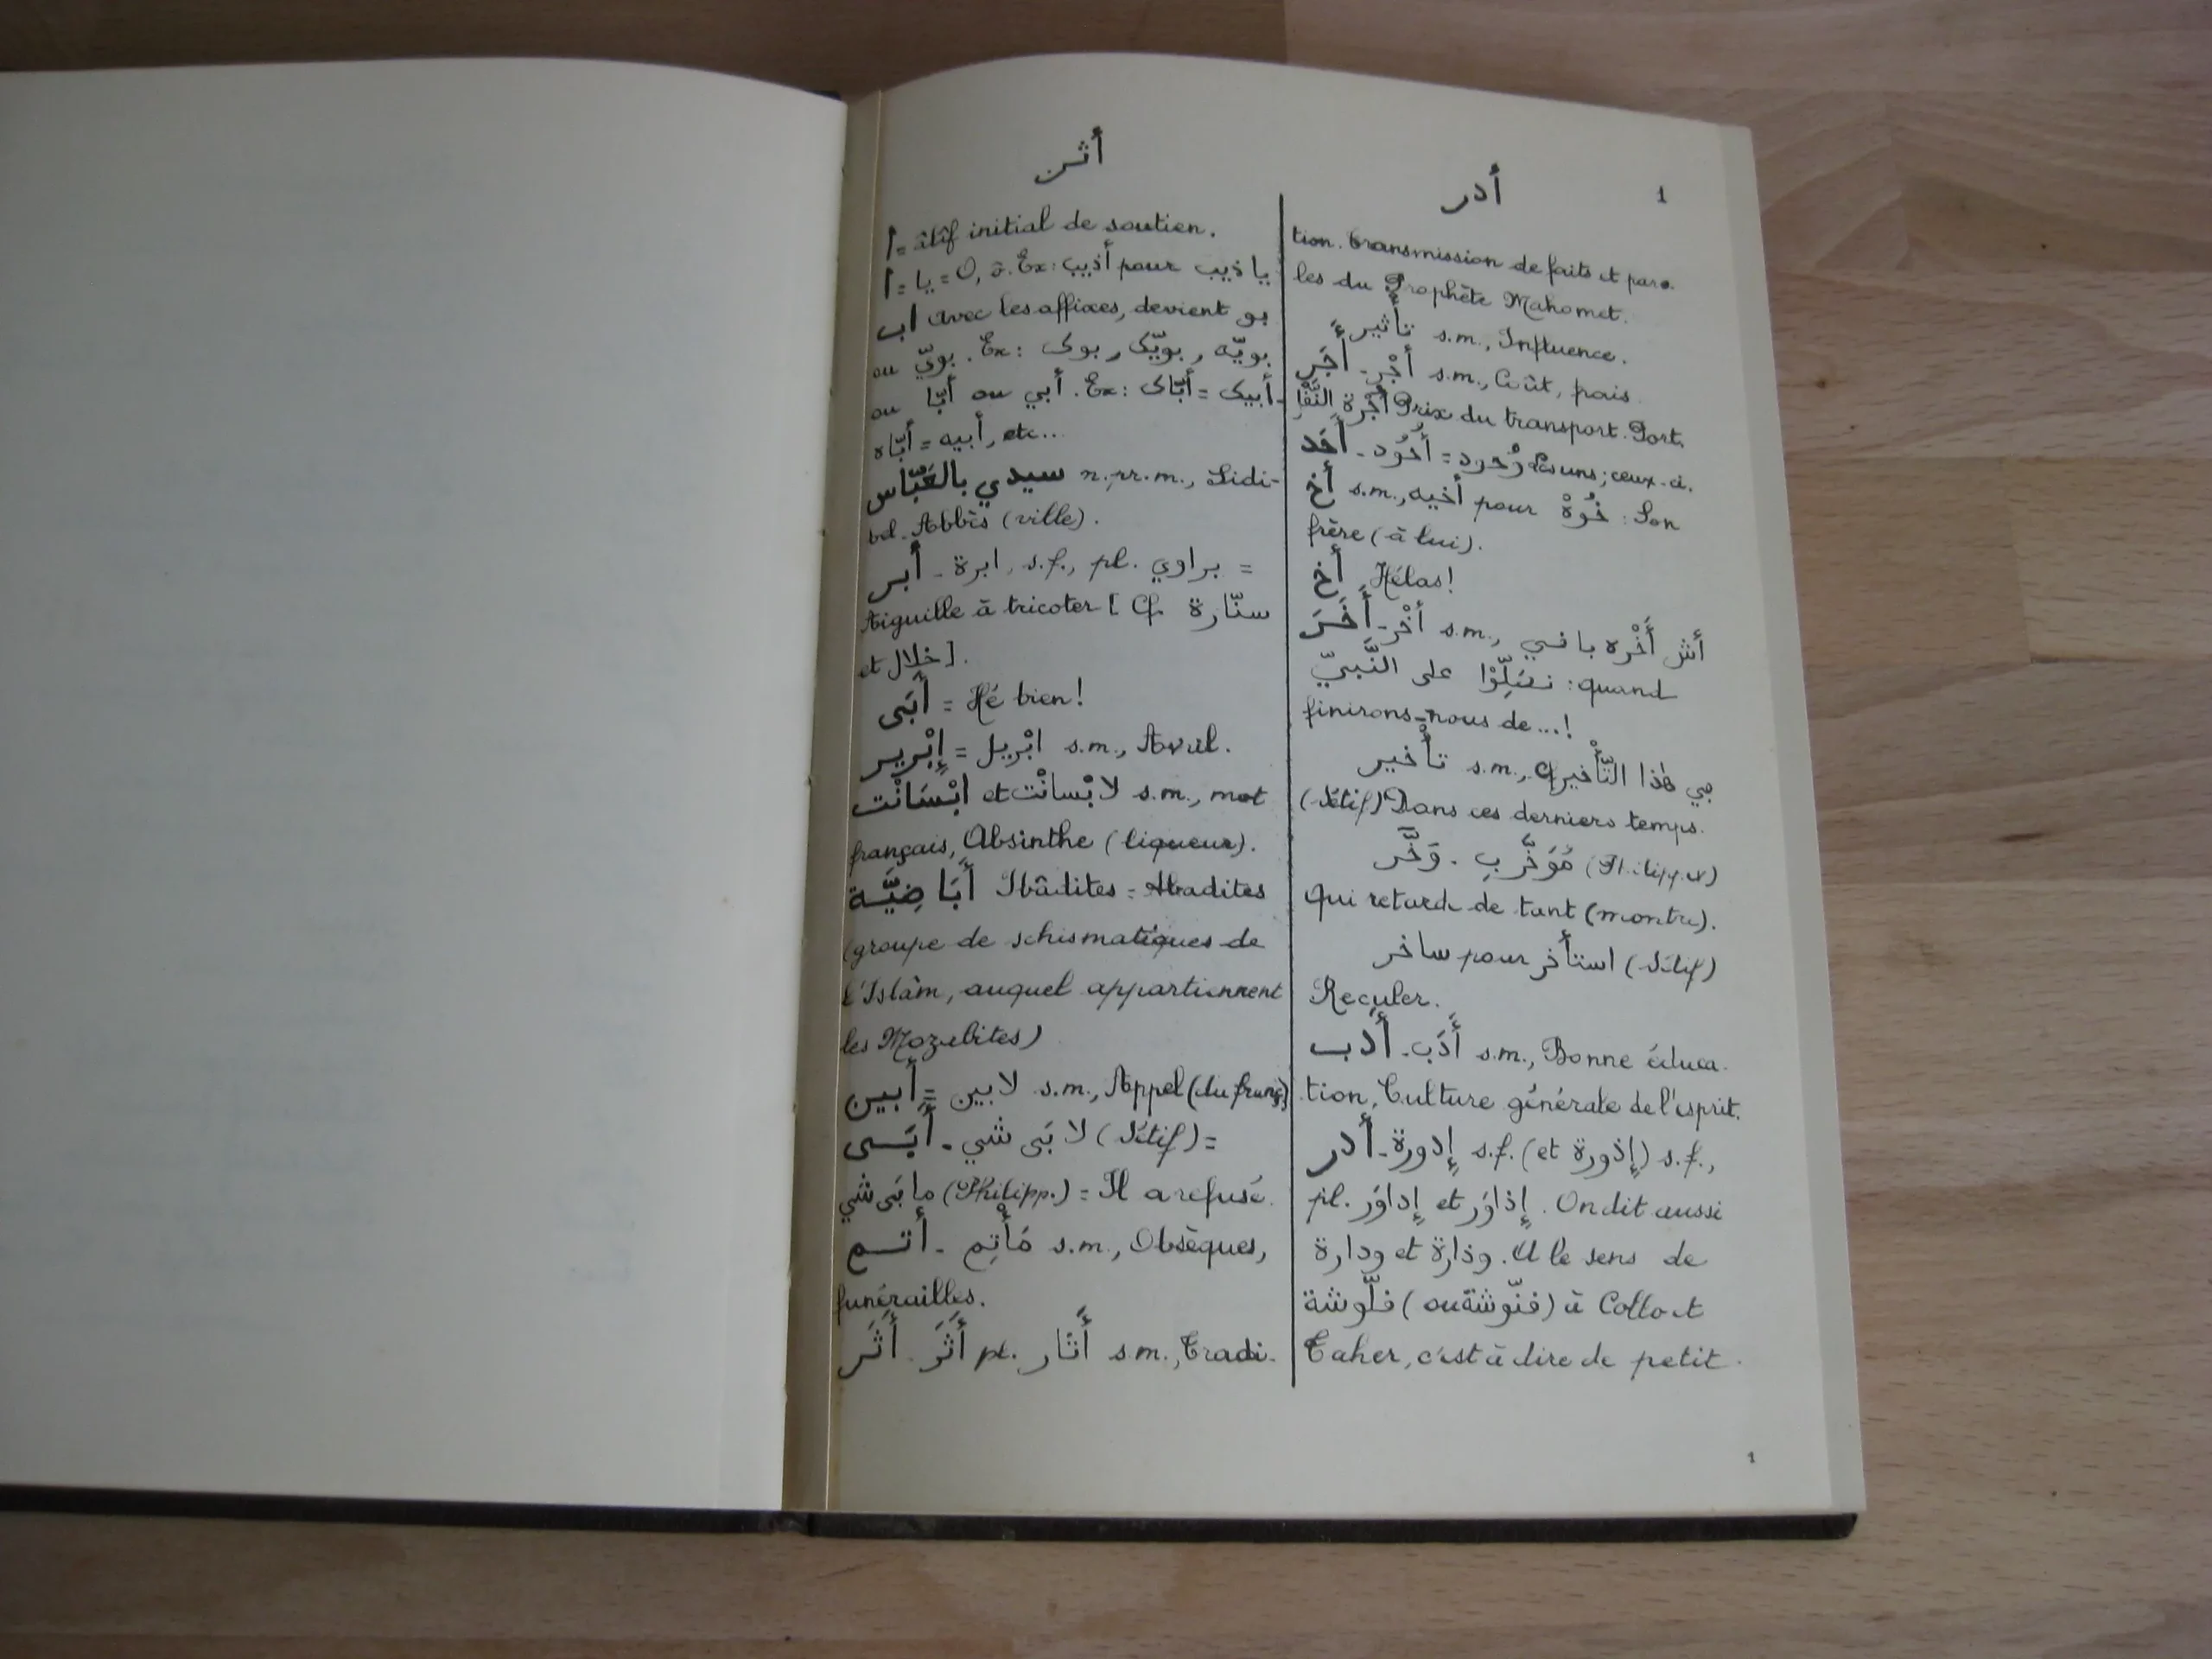 أثر
ا = âlîf initial de soutien.
ا = يا = O, ô. Ex: أذيب pour يا ذيب
اب avec les affixes, devient بو
ou بويّ. Ex: بوك, بويّك, بويّه
ou أبّا ou أبي. Ex: أبّاك = أبيك -
أبّاه = أبيه, etc...
سيدي بالعَبّاس n.pr.m., Sidi-
bel-Abbès (ville).
أبر - ابرة, s.f., pl. براوي =
Aiguille à tricoter [Cf. سنّارة
et خلال].
أَبَى = Hé bien!
إبْرير = ابْريل s.m., Avril.
ابْسَانْت et لابْسانْت s.m., mot
français, Absinthe (liqueur).
أَبَاضِيَّة Ibâdites = Abadites
(groupe de schismatiques de
l'Islâm, auquel appartiennent
les Mozabites)
أَبين = لابين s.m., Appel (du franç)
أَبَـى - لا بَى شي (Sétif) =
ما بَى شي (Philipp.) = Il a refusé.
أتـم - مَأْتِم s.m., Obsèques,
funérailles.
أَثَر - أَثَرَ pl. أَثَار s.m., Tradi-
أدر 1
tion. Transmission de faits et paro-
les du Prophète Mahomet.
تأثير s.m., Influence.
أَجَر - أجْر s.m., Coût, pais.
أُجْرة النَّقْل Prix du transport. Port.
أحَد - أُحُود = وُحود Les uns; ceux-ci.
أخ s.m., أخيه pour خُوهْ : Son
frère (à lui).
أخ Hélas!
أَخَرَ - أخْر s.m., أش أَخْره باش
نصَلِّوْا على النَّبيّ : quand
finirons-nous de...!
تأخير s.m., في هذا التَّأْخير
(Sétif) Dans ces derniers temps.
وَخَّر - مُوَخَّر بِ (Philipp.)
Qui retarde de tant (montre).
ساخر pour استأخر (Sétif)
Reculer.
أدب - أَدَب s.m., Bonne éduca-
tion, Culture générale de l'esprit.
أدر - إدورة s.f. (et إذورة) s.f.,
pl. إداوَر et إذاوَر. On dit aussi
ودارة et وذارة. A le sens de
فلّوشة (ou فنّوشة) à Collo et
Taher, c'est à dire de petit
1